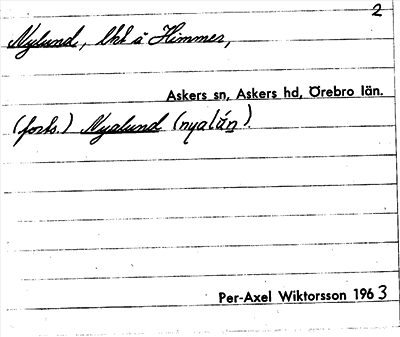 2
Nylund, lht å Himmer,
Askers sn, Askers hd, Örebro län.
(forts.) Nyalund (nyalún̲).
Per-Axel Wiktorsson 1963